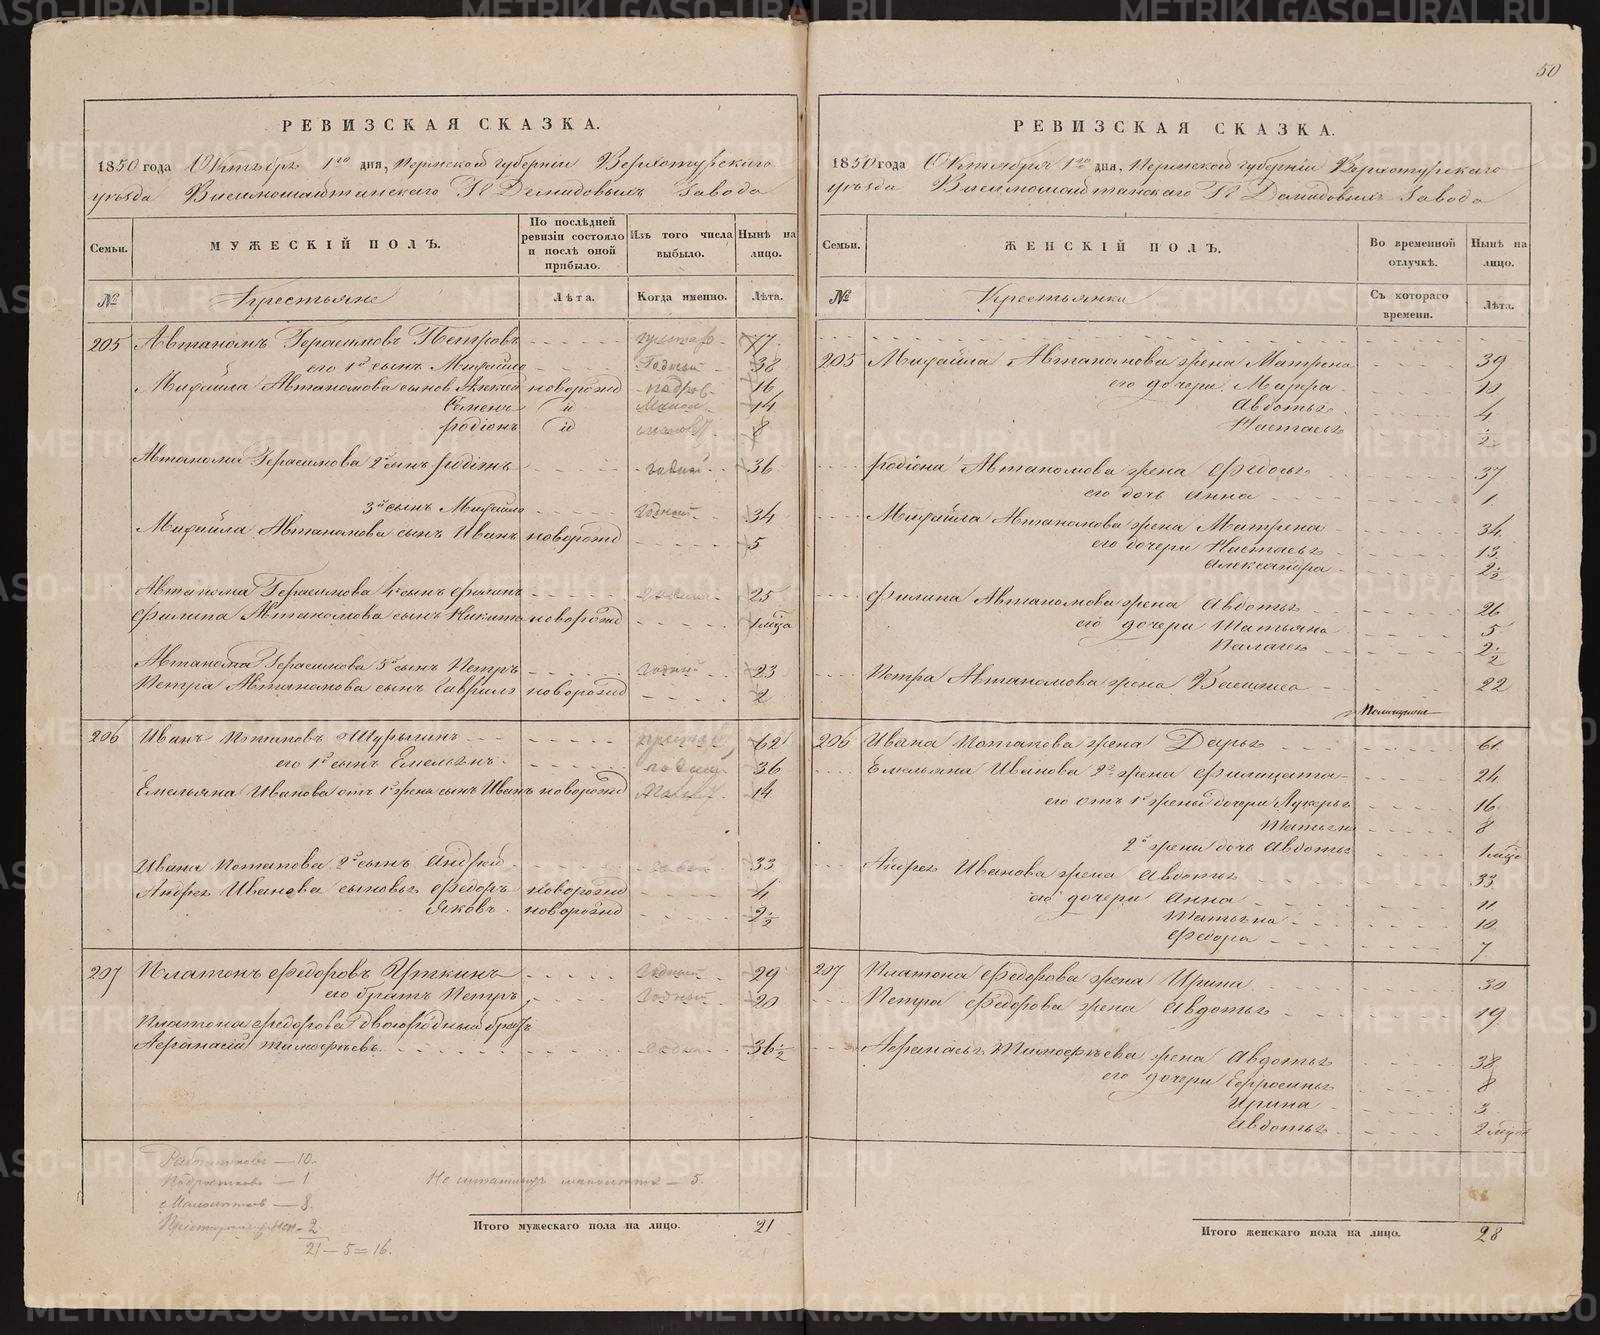 50
РЕВИЗСКАЯ СКАЗКА.
1850 года Октября 1го дня, Пермской губернии Верхотурского
уезда Висимошайтанского Гг Демидовых Завода
Семьи.
МУЖЕСКІЙ ПОЛЪ.
По послѣдней ревизіи состояло и послѣ оной прибыло.
Изъ того числа выбыло.
Нынѣ на лицо.
№
Крестьяне
Лѣта.
Когда именно.
Лѣта.
205 Автаномъ Герасимовъ Петровъ 77
его 1й сынъ Михайло Годный 38
Михайла Автаномова сынов новорожд подров 16
Семенъ и 14
Родіонъ и 8
Автанома Герасимова 2й сынъ Родіонъ годный 36
3й сынъ Михайло Годный 34
Михайла Автаномова сынъ Иванъ новорожд 5
Автанома Герасимова 4й сынъ Филипъ 25
Филипа Автаномова сынъ Никита новорожд 1 мца
Автанома Герасимова 5й сынъ Петръ Годный 23
Петра Автаномова сынъ Гаврило новорожд 2
206 Иванъ Потаповъ Шурыгинъ 62
его 1й сынъ Емельянъ 36
Емельяна Иванова отъ 1й жены сынъ Иванъ новорожд 14
Ивана Потапова 2й сынъ Андрей 33
Андрея Иванова сыновья Федоръ новорожд 4
Яковъ новорожд 2 1/2
207 Платонъ Федоровъ Уткинъ Годный 29
его братъ Петръ Годный 20
Платона Федорова двоюродный братъ
Афанасій Тимофѣевъ 36 1/2
Работниковъ — 10.
Подростковъ — 1
Малолѣтковъ — 8.
2
21 — 5 = 16.
— 5.
Итого мужескаго пола на лицо. 21
РЕВИЗСКАЯ СКАЗКА.
1850 года Октября 1го дня, Пермской губернии Верхотурского
уезда Висимошайтанского Гг Демидовых Завода
Семьи.
ЖЕНСКІЙ ПОЛЪ.
Во временной отлучкѣ.
Нынѣ на лицо.
№
Крестьянки
Съ котораго времени.
Лѣта.
205 Михайла Автаномова жена Матрена 39
его дочери Марфа 10
Авдотья 4
Настасья 1/2
Родіона Автаномова жена Федосья 37
его дочь Анна 1
Михайла Автаномова жена Матрена 34
его дочери Настасья 13
Александра 2 1/2
Филипа Автаномова жена Авдотья 26
его дочери Татьяна 5
Палагея 2 1/2
Петра Автаномова жена Василиса 22
206 Ивана Потапова жена Дарья 61
Емельяна Иванова 2я жена Филицата 24
его отъ 1й жены дочери Лукерья 16
Татьяна 8
2й жены дочь Авдотья 1 мца
Андрея Иванова жена Авдотья 33
его дочери Анна 11
Татьяна 10
Федора 7
207 Платона Федорова жена Ирина 30
Петра Федорова жена Авдотья 19
Афанасья Тимофѣева жена Авдотья 38
его дочери Ефросинья 8
Ирина 3
Авдотья 2 мцов
Итого женскаго пола на лицо. 28
METRIKI.GASO-URAL.RU